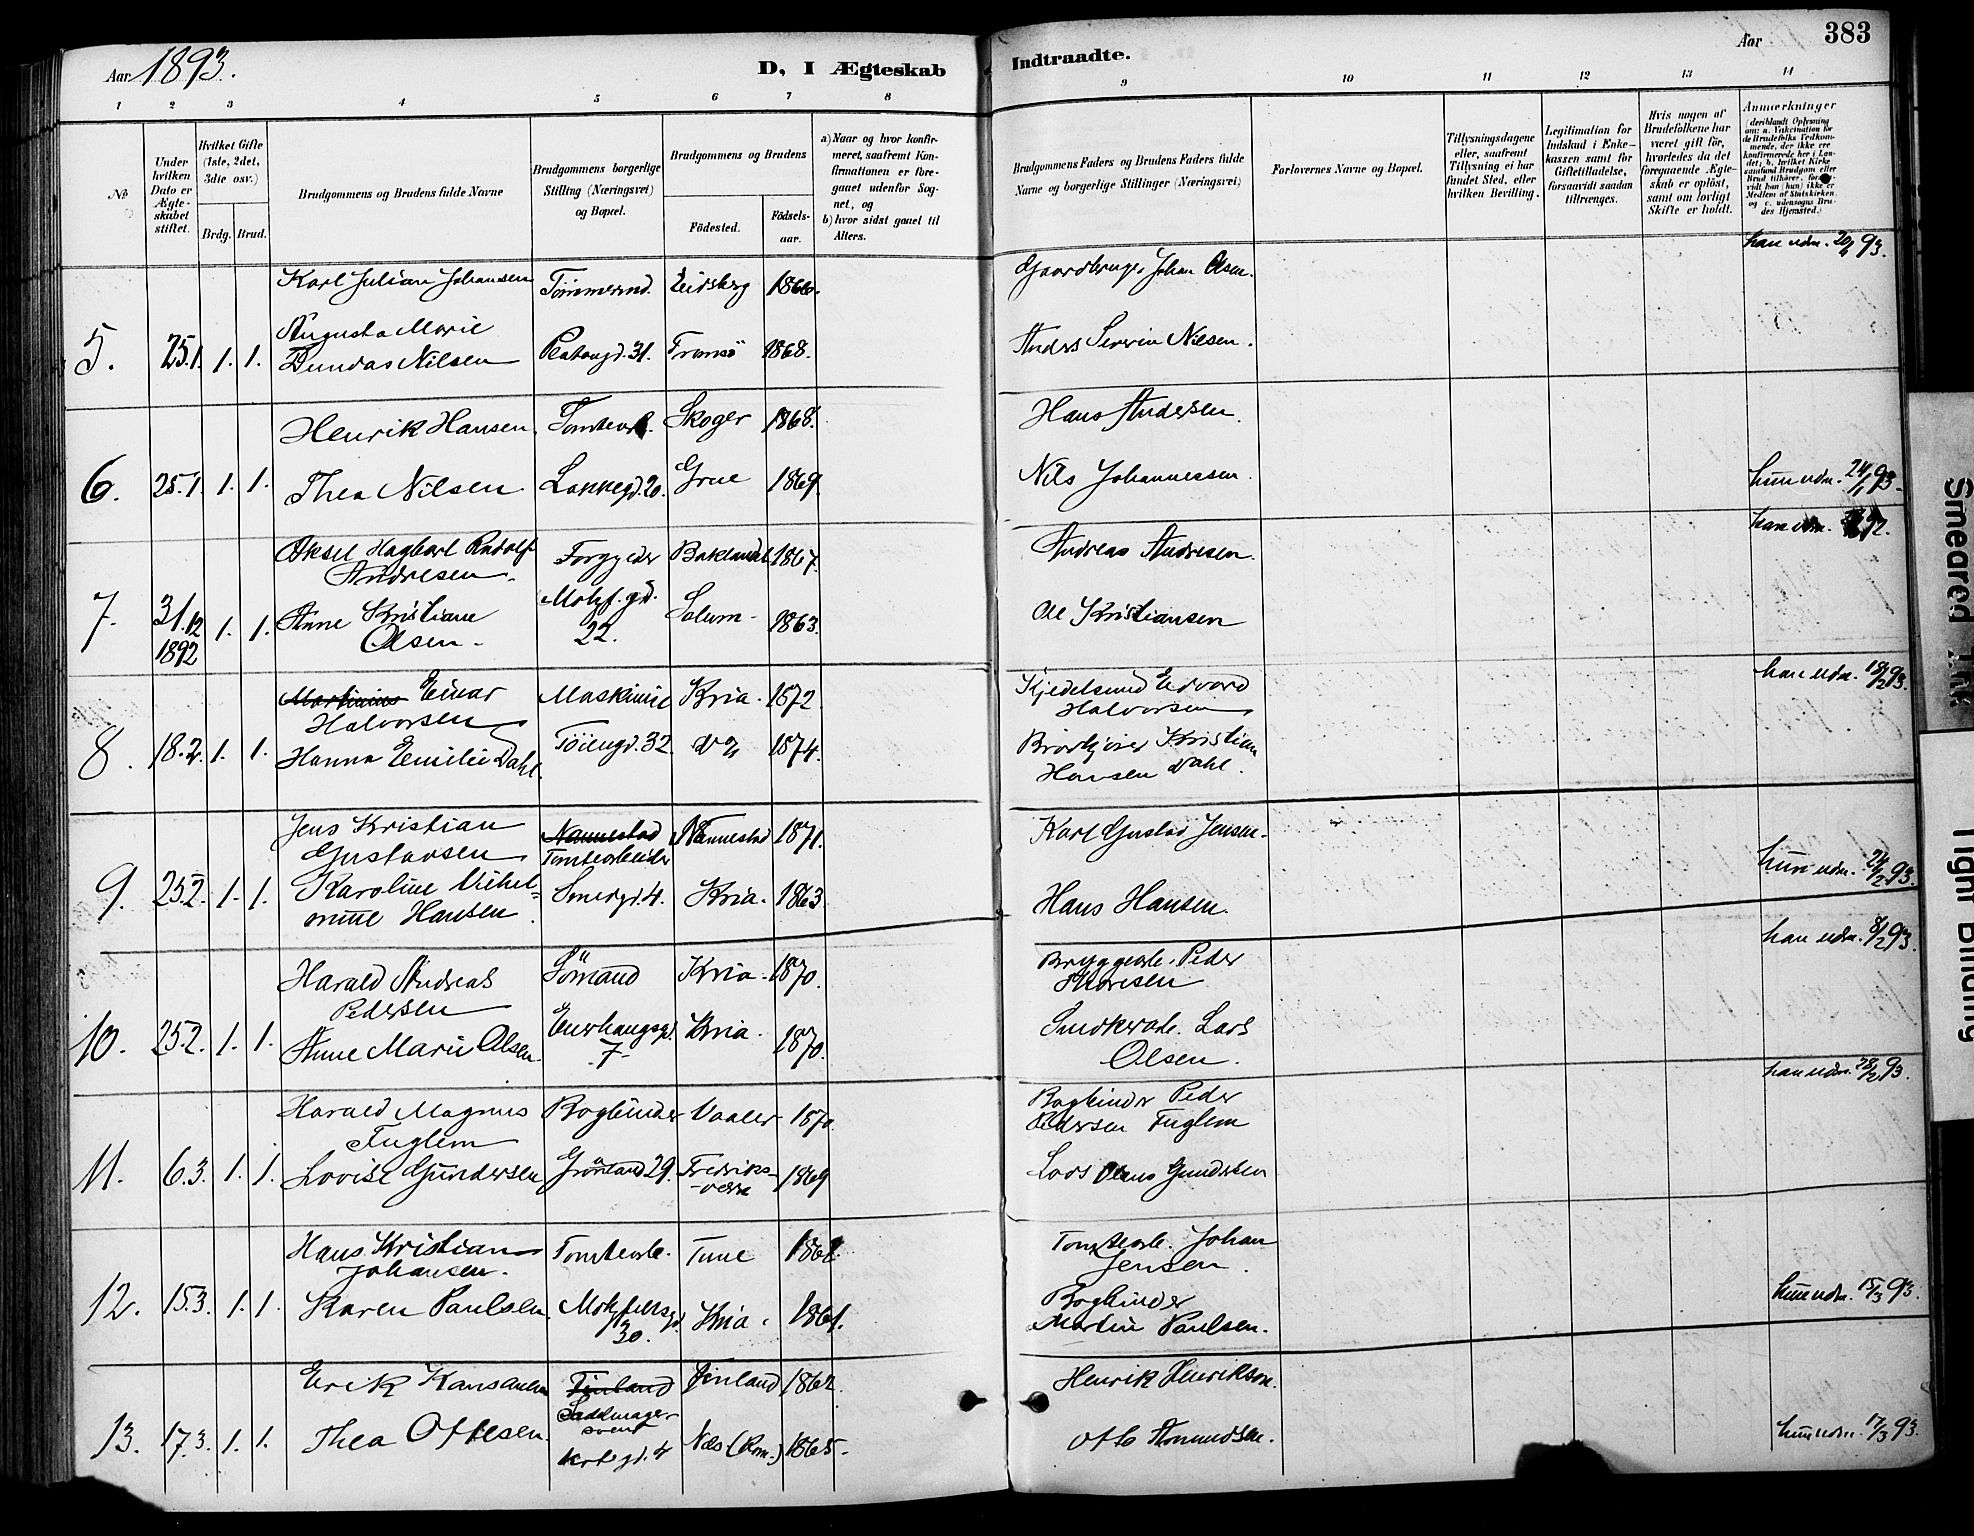 Aar 1893.
D, I Ægteskab
Indtraadte.
Aar
383
1 2 3 4 5 6 7 8 9 10 11 12 13 14
No
Under hvilken Dato er Ægteskabet stiftet.
Hvilket Gifte (1ste, 2det, 3die osv.)
Brdg. Brud.
Brudgommens og Brudens fulde Navne
Brudgommens borgerlige Stilling (Næringsvei) og Bopæl.
Brudgommens og Brudens
Födested.
Födsels-aar.
a) Naar og hvor konfirmeret, saafremt Konfirmationen er foregaaet udenfor Sognet, og
b) hvor sidst gaaet til Alters.
Brudgommens Faders og Brudens Faders fulde Navne og borgerlige Stillinger (Næringsvei)
Forlovernes Navne og Bopæl.
Tillysningsdagene eller, saafremt Tillysning ei har fundet Sted, efter hvilken Bevilling.
Legitimation for Indskud i Enkekassen samt for Giftetilladelse, forsaavidt saadan tiltrænges.
Hvis nogen af Brudefolkene har været gift för, hvorledes da det foregaaende Ægteskab er oplöst, samt om lovligt Skifte er holdt.
Anmærkninger (deriblandt Oplysning om: a. Vakcination for de Brudefolks Vedkommende, der ikke ere konfirmerede her i Landet; b. hvilket Kirkesamfund Brudgom eller Brud tilhörer, forsaavidt han (hun) ikke er Medlem af Statskirken og c. udensogns Brudes Hjemsted.)
Karl Julian Johansen Tömmermd. Eidsberg 1866. Gaardbruger Johan Olsen.
5. 25.1. 1. 1. Augusta Marie
Dundas Nilsen Platougd. 31. Tromsö 1868. Anders Severin Nilsen.
Henrik Hansen. Tomtearb. Skoger 1868. Hans Andersen.
6. 25.1. 1. 1. Thea Nilsen Lakkegd. 20. Grue 1869. Nils Johannessen. hun udn. 24/1 93.
Aksel Hagbart Rudolf
Andresen. 1867. Andreas Andresen.
7. 31.12 1892 1. 1. Anne Kristiane
Olsen. Motzf. gd. 22. Solum. 1863. Ole Kristiansen
Martinius Einar
Halvorsen Maskinist Kria. 1872 Kjedelsmed Edvard Halvorsen han udn. 18/2 93.
8. 18.2. 1. 1. Hanna Emilie Dahl. Töiengd. 32 1874. Kristian Hansen Dahl.
Jens Kristian
Gustavsen Nannestad Tomtearbeider Nannestad 1871. Karl Gustav Jensen.
9. 25.2. 1. 1. Karoline Vilhelmine Hansen. Smedgd. 4. Kria. 1863 Hans Hansen. hun udn. 24/2 93.
Harald Andreas
Pedersen Sömand Kria. 1870. Bryggearb. Peder Thoresen han udn. 8/2 93.
10. 25.2. 1. 1. Anne Marie Olsen. Enerhaugsgd. 7 Kria. 1870. Snedkerarb. Lars Olsen.
Harald Magnus
Fuglem Bogbinder Vaaler 1870. Bogbinder Peder Pedersen Fuglem han udn. 28/2 93.
11. 6.3. 1. 1. Lovise Gundersen Grönland 29. Fredriksværn 1869 Lars Olaus Gundersen
Hans Kristian
Johansen. Tomtearb. Tune Tomtearb. Johan Jensen.
12. 15.3. 1. 1. Karen Paulsen. Motzfeldtsgd. 30. Kria. 1861. Bogbinder Martin Paulsen. hun udn. 15/3 93.
Erik Finland Sadelmagersvend Finland 1862. Henrik Henrikson.
13. 17.3. 1. 1. Thea Ottesen. Nes (Rom.) 1865. Otto hun udn. 17/3 93.
Smeared Ink
Tight Binding